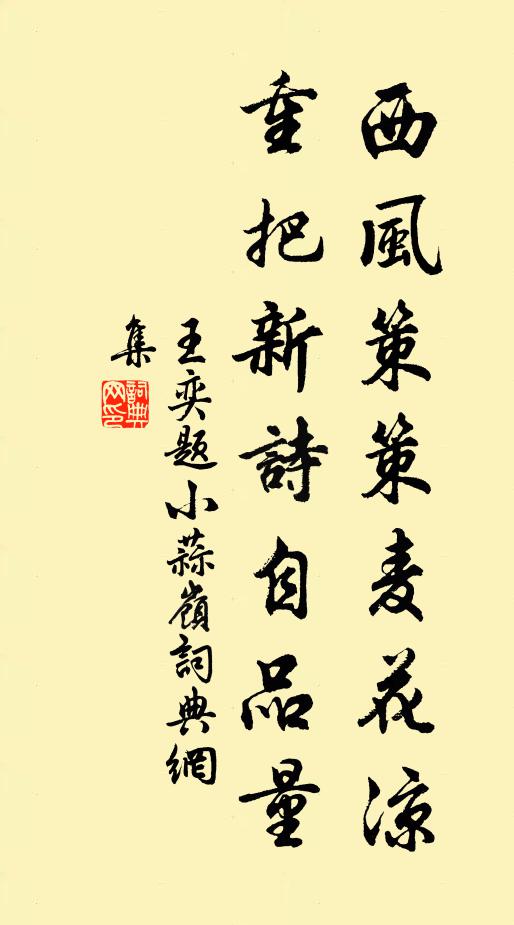 西風策策麦花涼
重把新詩自品量
王奕題小蒜嶺詞典網
集
詞典
网印